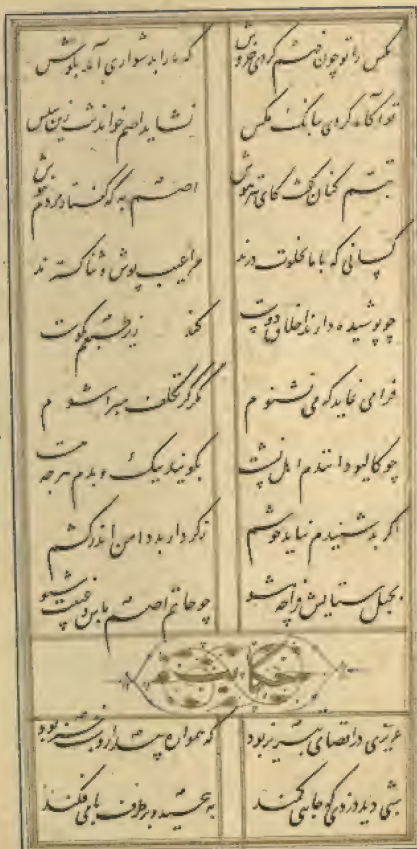 مکس را تو چون فهم کردی خروش که ما را بدشواری آمد بکوش
تو آکاه کردی ببانک مکس نشاید اصم خواندنت زین سپس
تبسم کنان گفت کای تیزهوش اصم به که گفتار مردم
کسانی که با ما بخلوت درند مرا عیب پوش و ثنا کسترند
چو پوشیده دارند اخلاق کند زیر طبعم
فرا می نماید که می نشنوم مکر کز تکلف مبرا شوم
چو کالیو دانندم اهل نشست بکویند نیک و بدم هر چه هست
اکر بد شنیدم نیاید خوشم ز کردار بد دامن اندر کشم
بحبل ستایش فرا چه مشو چو حاتم اصم باش و عیبت شنو
حکایت
عزیزی در اقصای تبریز بود که همواره بیدار و شب خیز بود
شبی دید دزدی که جایی کمند به پیچید و بر طرف بامی فکند